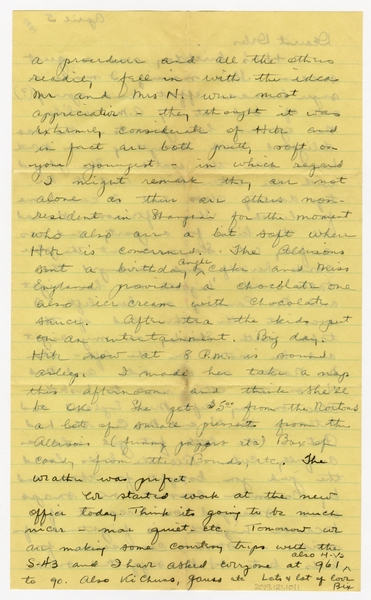 a procedure and all the others
readily fell in with the idea
Mr and Mrs N. were most
appreciative – they thought it was
extremely considerate of Hitz and
in fact are both pretty soft on
your youngest – in which regard
I might remark they are not
alone as there are others non-
resident in Shanghai for the moment
who also are a bit soft where
Hitz is concerned. The Allisons
sent a birthday angel cake and Miss
England provided a chocolate one
also ice cream with chocolate
sauce. After tea the kids put
on an entertainment. Big day.
Hitz now at 8 P.M. is sound
asleep. I made her take a nap
this afternoon and think she'll
be OK. She got $5.00 from the Nortons
a lot of small presents from the
Allisons (funny etc) Box of
candy from the Bonds, etc. The
weather was perfect.
We started work at the new
office today. Think its going to be much
nicer – more quiet – etc. Tomorrow we
are making some country trips with the
S-43 and I have asked everyone at 961
also
to go. Also KiChuns, etc Lots & lot of love
Bix